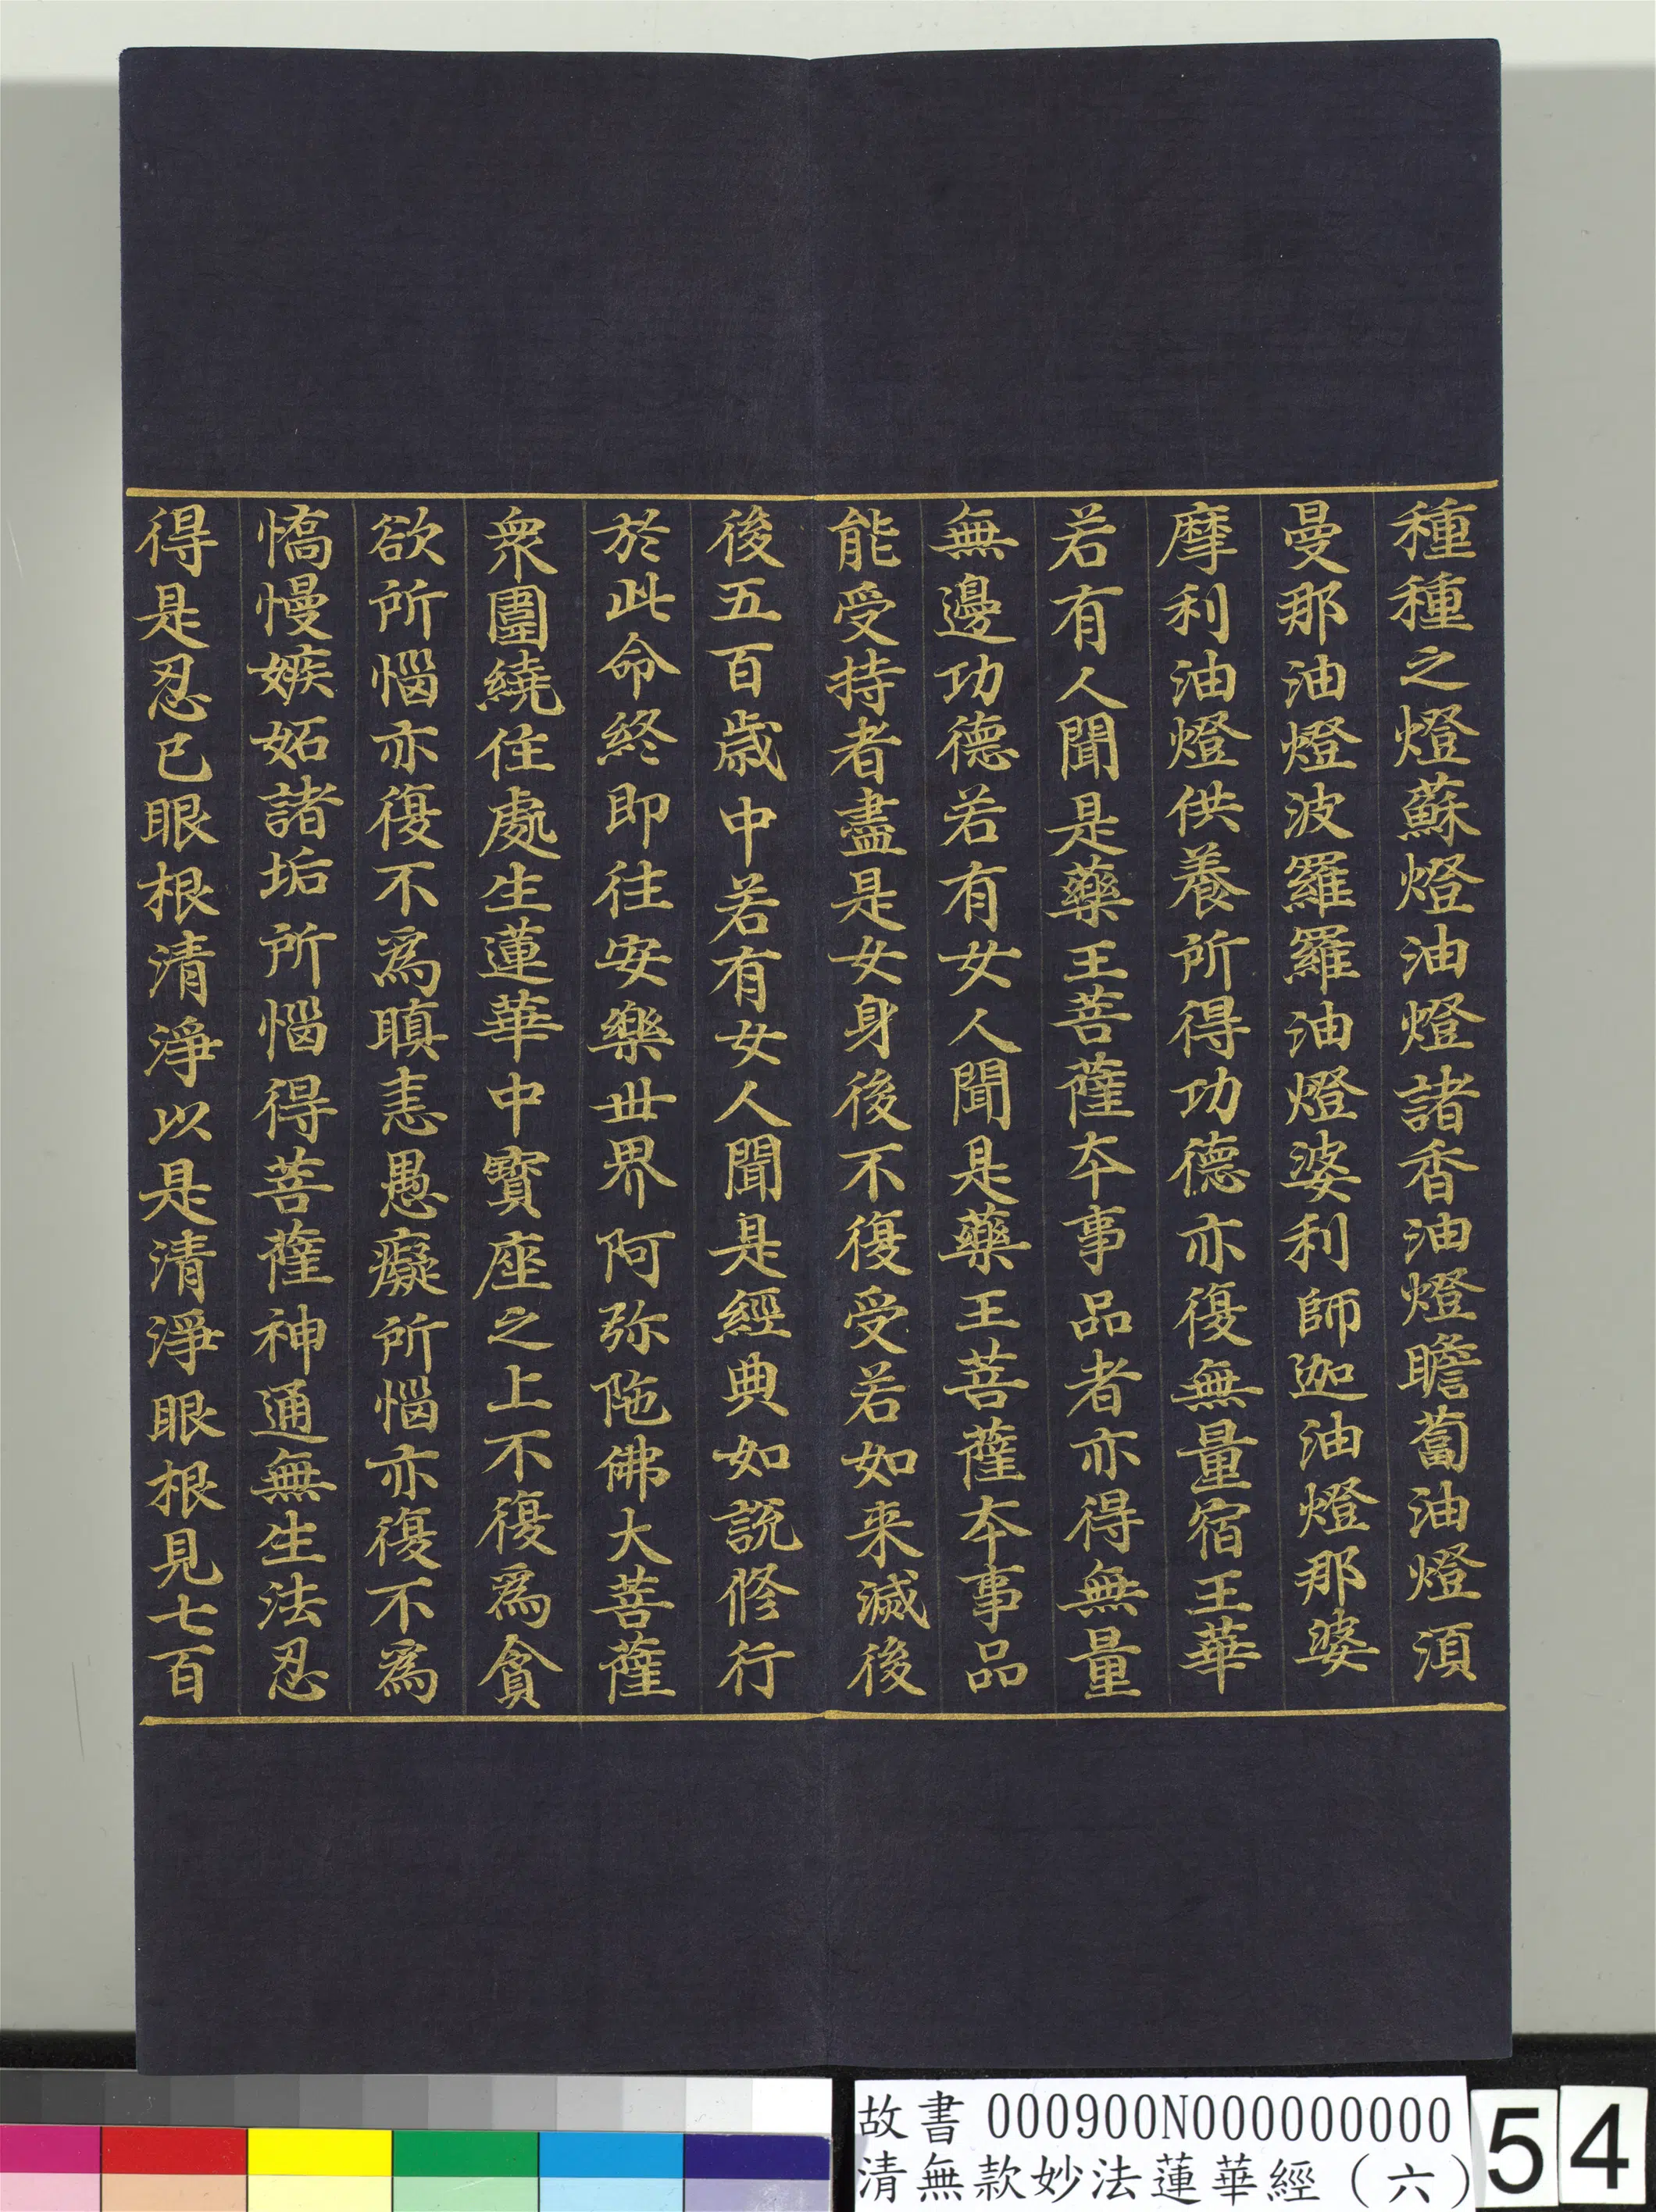 種種之燈蘇燈油燈諸香油燈瞻蔔油燈湏
曼那油燈波羅羅油燈婆利師迦油燈那婆
摩利油燈供養所得功德亦復無量宿王華
若有人聞是藥王菩薩夲事品者亦得無量
無邊功德若有女人聞是藥王菩薩夲事品
能受持者盡是女身後不復受若如来滅後
後五百歳中若有女人聞是經典如說修行
於此命終即往安樂世界阿弥陁佛大菩薩
衆圍繞住處生蓮華中寳座之上不復為貪
欲所惱亦復不為瞋恚愚癡所惱亦復不為
憍慢嫉妬諸垢所惱得菩薩神通無生法忍
得是忍已眼根清淨以是清淨眼根見七百
故書 000900N000000000
清無款妙法蓮華經（六）
54